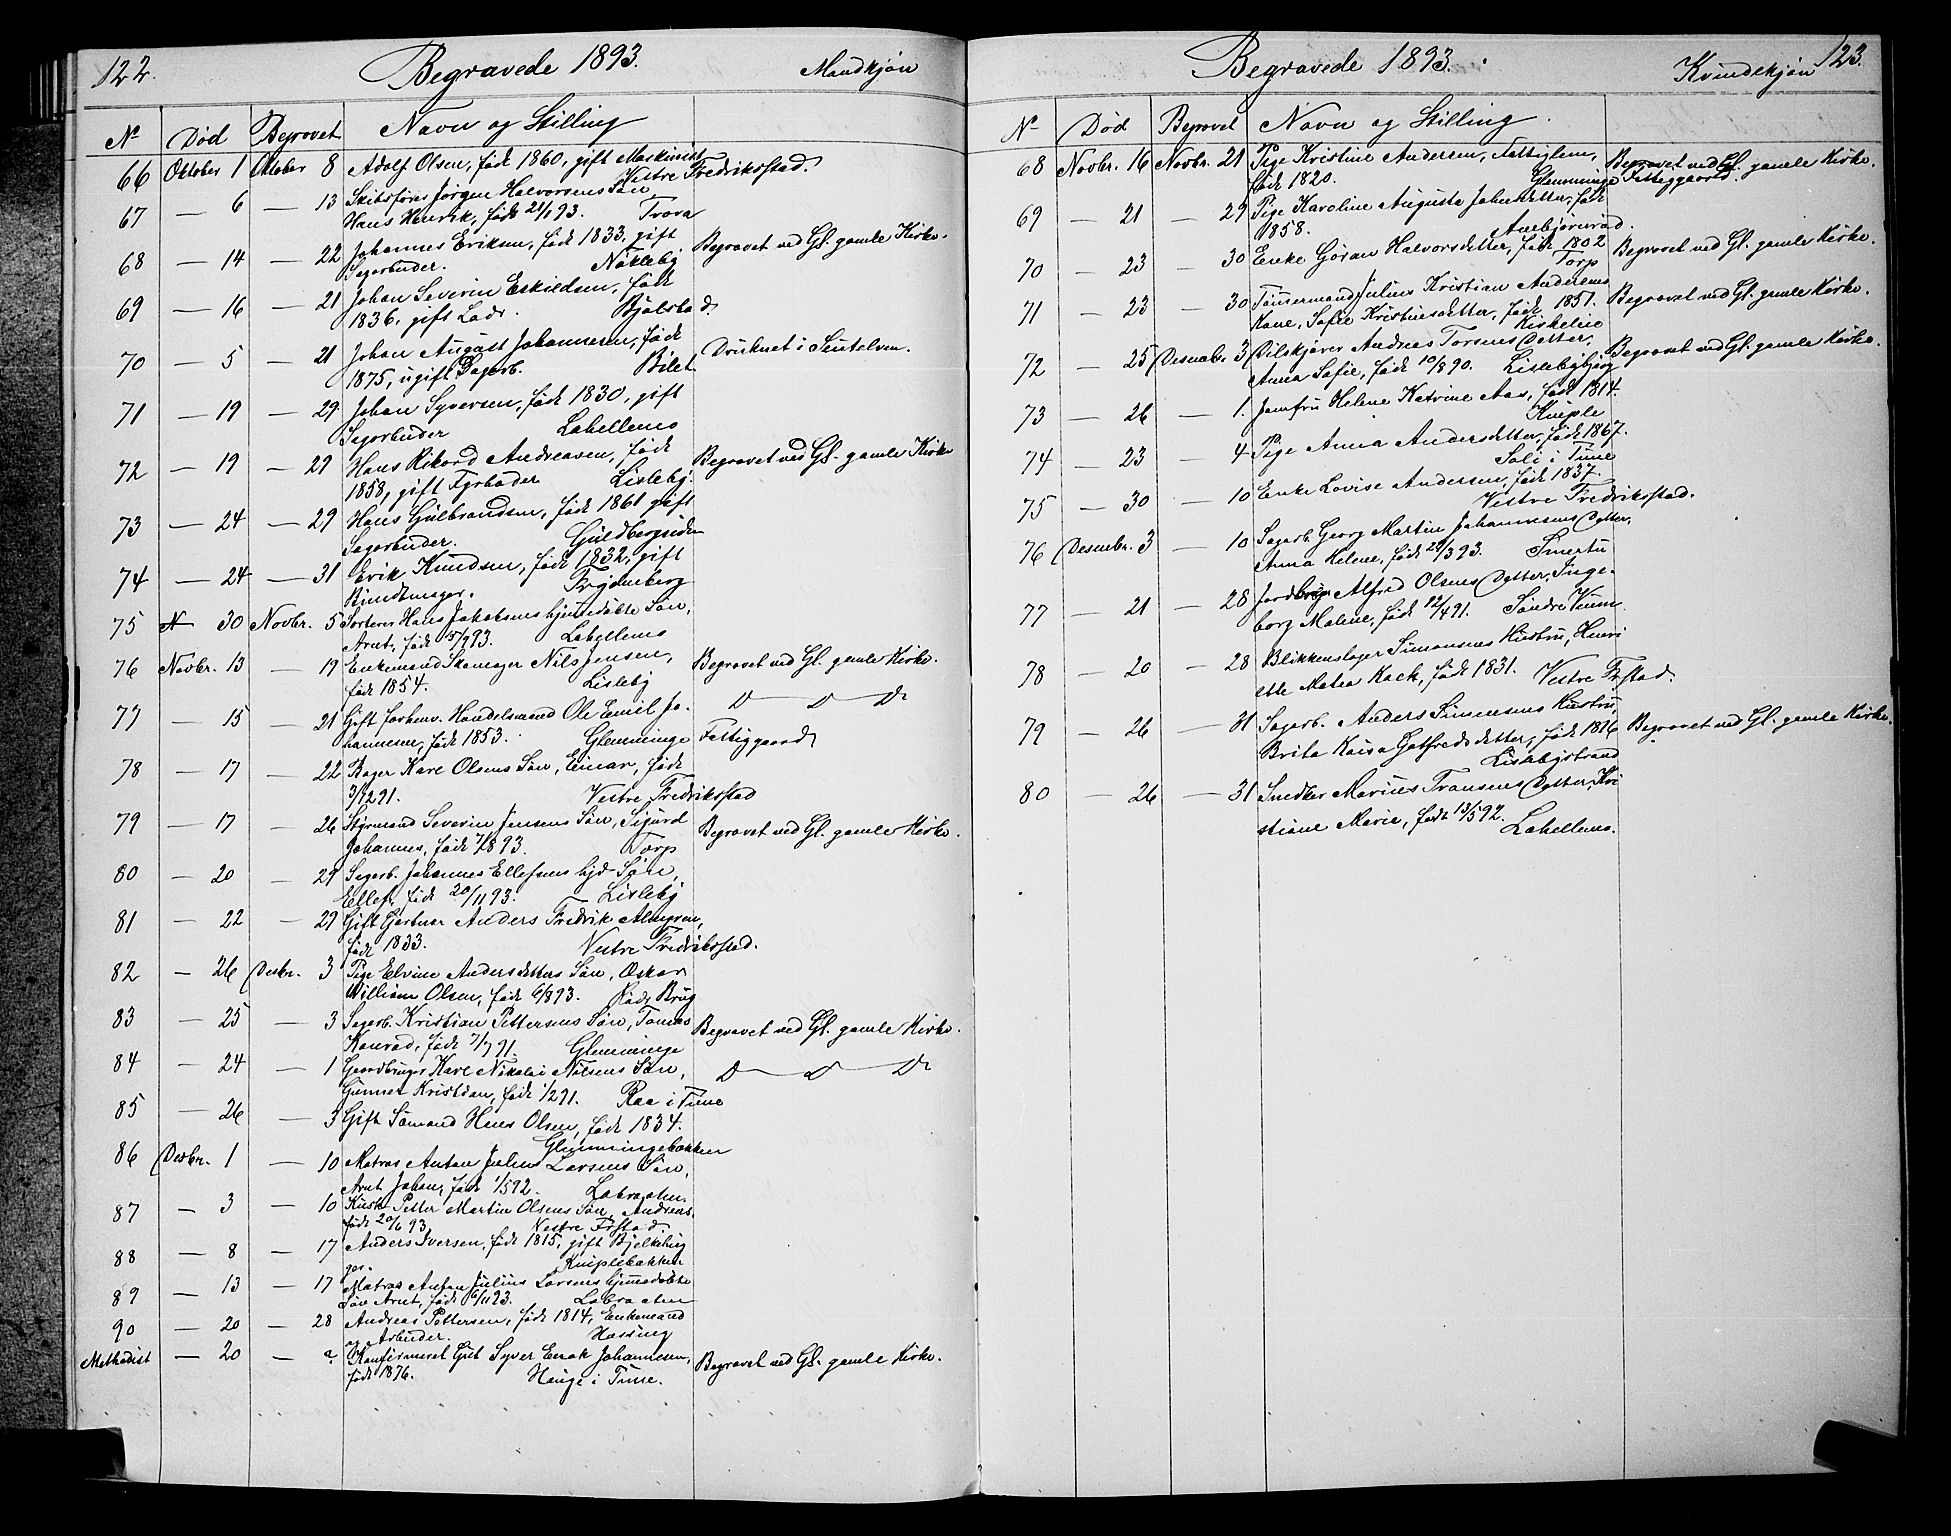 122. Begravede 1893. Mandkjøn
No Død Begravet Navn og Stilling
66 Oktober 1 Oktober 8 Adolf Olsen, født 1860, gift Maskinist
Vestre Fredriksstad.
67 — 6 — 13 Skibsfører Jørgen Halvorsens Søn
Hans Henrik, født 21/1 93. Trara
68 — 14 — 22 Johannes Eriksen, født 1833, gift Begravet ved Gl. gamle Kirke.
Sagarbuder. Nøkleby
69 — 16 — 21 Johan Severin Eskildsen, født
1836, gift Lods. Bjølstad
70 — 5 — 21 Johan August Johannesen, født Druknet i Seutelven.
1875, ugift Sagarb. Bilet
71 — 19 — 29 Johan Syversen, født 1830, gift
Sagarbuder Labellens
72 — 19 — 29 Hans Rikard Andreasen, født Begravet ved Gl. gamle Kirke
1858, gift Fyrbøder Lisleby.
73 — 24 — 29 Hans Gulbrandsen, født 1861 gift
Sagarbuder. Guldbergsiden
74 — 24 — 31 Erik Knudsen, født 1832, gift
Bundtmager. Frydenberg
75 N 30 Novbr. 5 Sorterer Hans Jakobsens hjemdøbte Søn,
Arnt, født 15/9 93. Labellens
76 Novbr. 13 — 19 Enkemand Skomager Nils Jensen, Begravet ved Gl. gamle Kirke.
født 1854. Lisleby
77 — 15 — 21 Gift forhenv. Handelsmand Ole Emil Jo- Do Do Do
hannesen, født 1853. Glemminge Fattiggaard
78 — 17 — 22 Bager Kare Olsens Søn, Einar, født
3/12 91. Vestre Fredriksstad
79 — 17 — 26 Styrmand Severin Jensens Søn, Sigurd Begravet ved Gl. gamle Kirke.
Johannes, født 7/8 93. Torp
80 — 20 — 29 Sagarb. Johannes Ellefsens hjd Søn,
Ellef, født 20/11 93. Lisleby
81 — 22 — 29 Gift Gartner Anders Fredrik Almgren,
født 1833. Vestre Fredriksstad.
82 — 26 Desbr. 3 Pige Elvine Andersdatters Søn, Oskar
William Olsen, født 6/8 93. Røds Brug
83 — 25 — 3 Sagarb. Kristian Pettersens Søn, Tomas Begravet ved Gl. gamle Kirke.
Konrad, født 7/9 91. Glemminge
84 — 24 — 1 Gaardbruger Karl Nikolai Nilsens Søn, Do Do Do
Gunnar Kristian, født 1/2 91. Raa i Tune
85 — 26 — 3 Gift Sømand Hans Olsen, født 1834.
Glemmingebakken
86 Desbr. 1 — 10 Matros Anton Julius Larsens Søn,
Arnt Johan, født 1/5 92. Labraaten.
87 — 3 — 10 Kusk Petter Martin Olsens Søn, Andreas,
født 20/6 93. Vestre Frstad.
88 — 8 — 17 Anders Iversen, født 1815, gift Bjelkehug
ger. Kniplebakken
89 — 13 — 17 Matros Anton Julius Larsens hjemmedøbte
Søn Arnt, født 6/11 93. Labraaten
90 — 20 — 28 Andreas Pettersen, født 1814, Enkemand
og Arbuder. Hassing
Methodist — 20 — ? Konfirmeret Gut Syver Enok Johannesen, Begravet ved Gl. gamle Kirke.
født 1876. Hauge i Tune.
Begravede 1893. Kvindekjøn 123.
No Død Begravet Navn og Stilling
68 Novbr. 16 Novbr. 21 Pige Kristine Andersen, Fattiglem, Begravet ved Gl. gamle Kirke.
født 1820. Glemminge Fattiggaard.
69 — 21 — 29 Pige Karoline Auguste Johnsdatter, født
1858. Aurbjørnrød.
70 — 23 — 30 Enke Gøran Halvorsdatter, født 1802 Begravet ved Gl. gamle Kirke.
Torp
71 — 23 — 30 Tømmermand Julius Kristian Andersens Begravet ved Gl. gamle Kirke.
Kone, Sofie Kristinesdatter, født 1851.
Kirkelien
72 — 25 Desembr. 3 Pilskjører Andreas Torsens Datter, Begravet ved Gl. gamle Kirke.
Anna Sofie, født 10/8 90. Lislebybjerg
73 — 26 — 1. Jomfru Helene Katrine Aas, født 1814.
Kniple
74 — 23 — 4 Pige Anna Andersdatter, født 1867.
Soli i Tune
75 — 30 — 10 Enke Lovise Andersen, født 1837.
Vestre Fredriksstad.
76 Desembr. 3 — 10 Sagarb. Georg Martin Johannesens Datter,
Anna Helene, født 29/3 93. Smertu
77 — 21 — 28 Jordbrugr Alfred Olsens Datter, Inge-
borg Malene, født 12/4 91. Søndre Kum
78 — 20 — 28 Blikkenslager Simonsens Hustru, Henri
ette Matea Kock, født 1831. Vestre Frstad.
79 — 26 — 31 Sagarb. Anders Simensens Hustru,
Brita Kaisa Gotfredsdatter, født 1816 Begravet ved Gl. gamle Kirke.
Lislebystrand
80 — 26 — 31 Snedker Marius Fransens Datter, Kri
stiane Marie, født 13/5 92. Labellens.